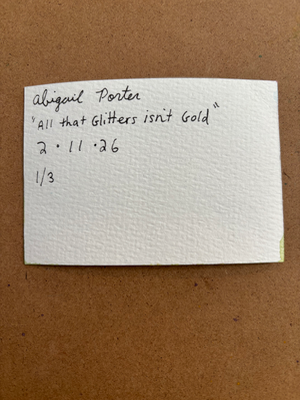 Abigail Porter
"All that Glitters isn't Gold"
2 · 11 · 26
1/3